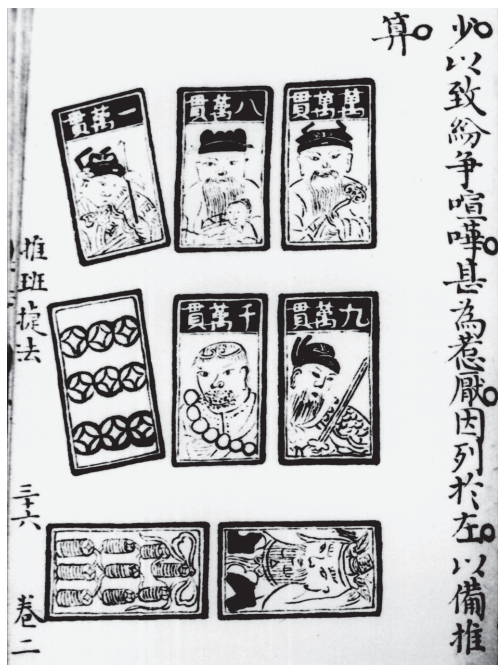 少。以致紛争喧嘩。甚為惹厭。因列於左。以備推
算。
萬萬貫
八萬貫
一萬貫
九萬貫
千萬貫
推班掟法
三十六
卷二